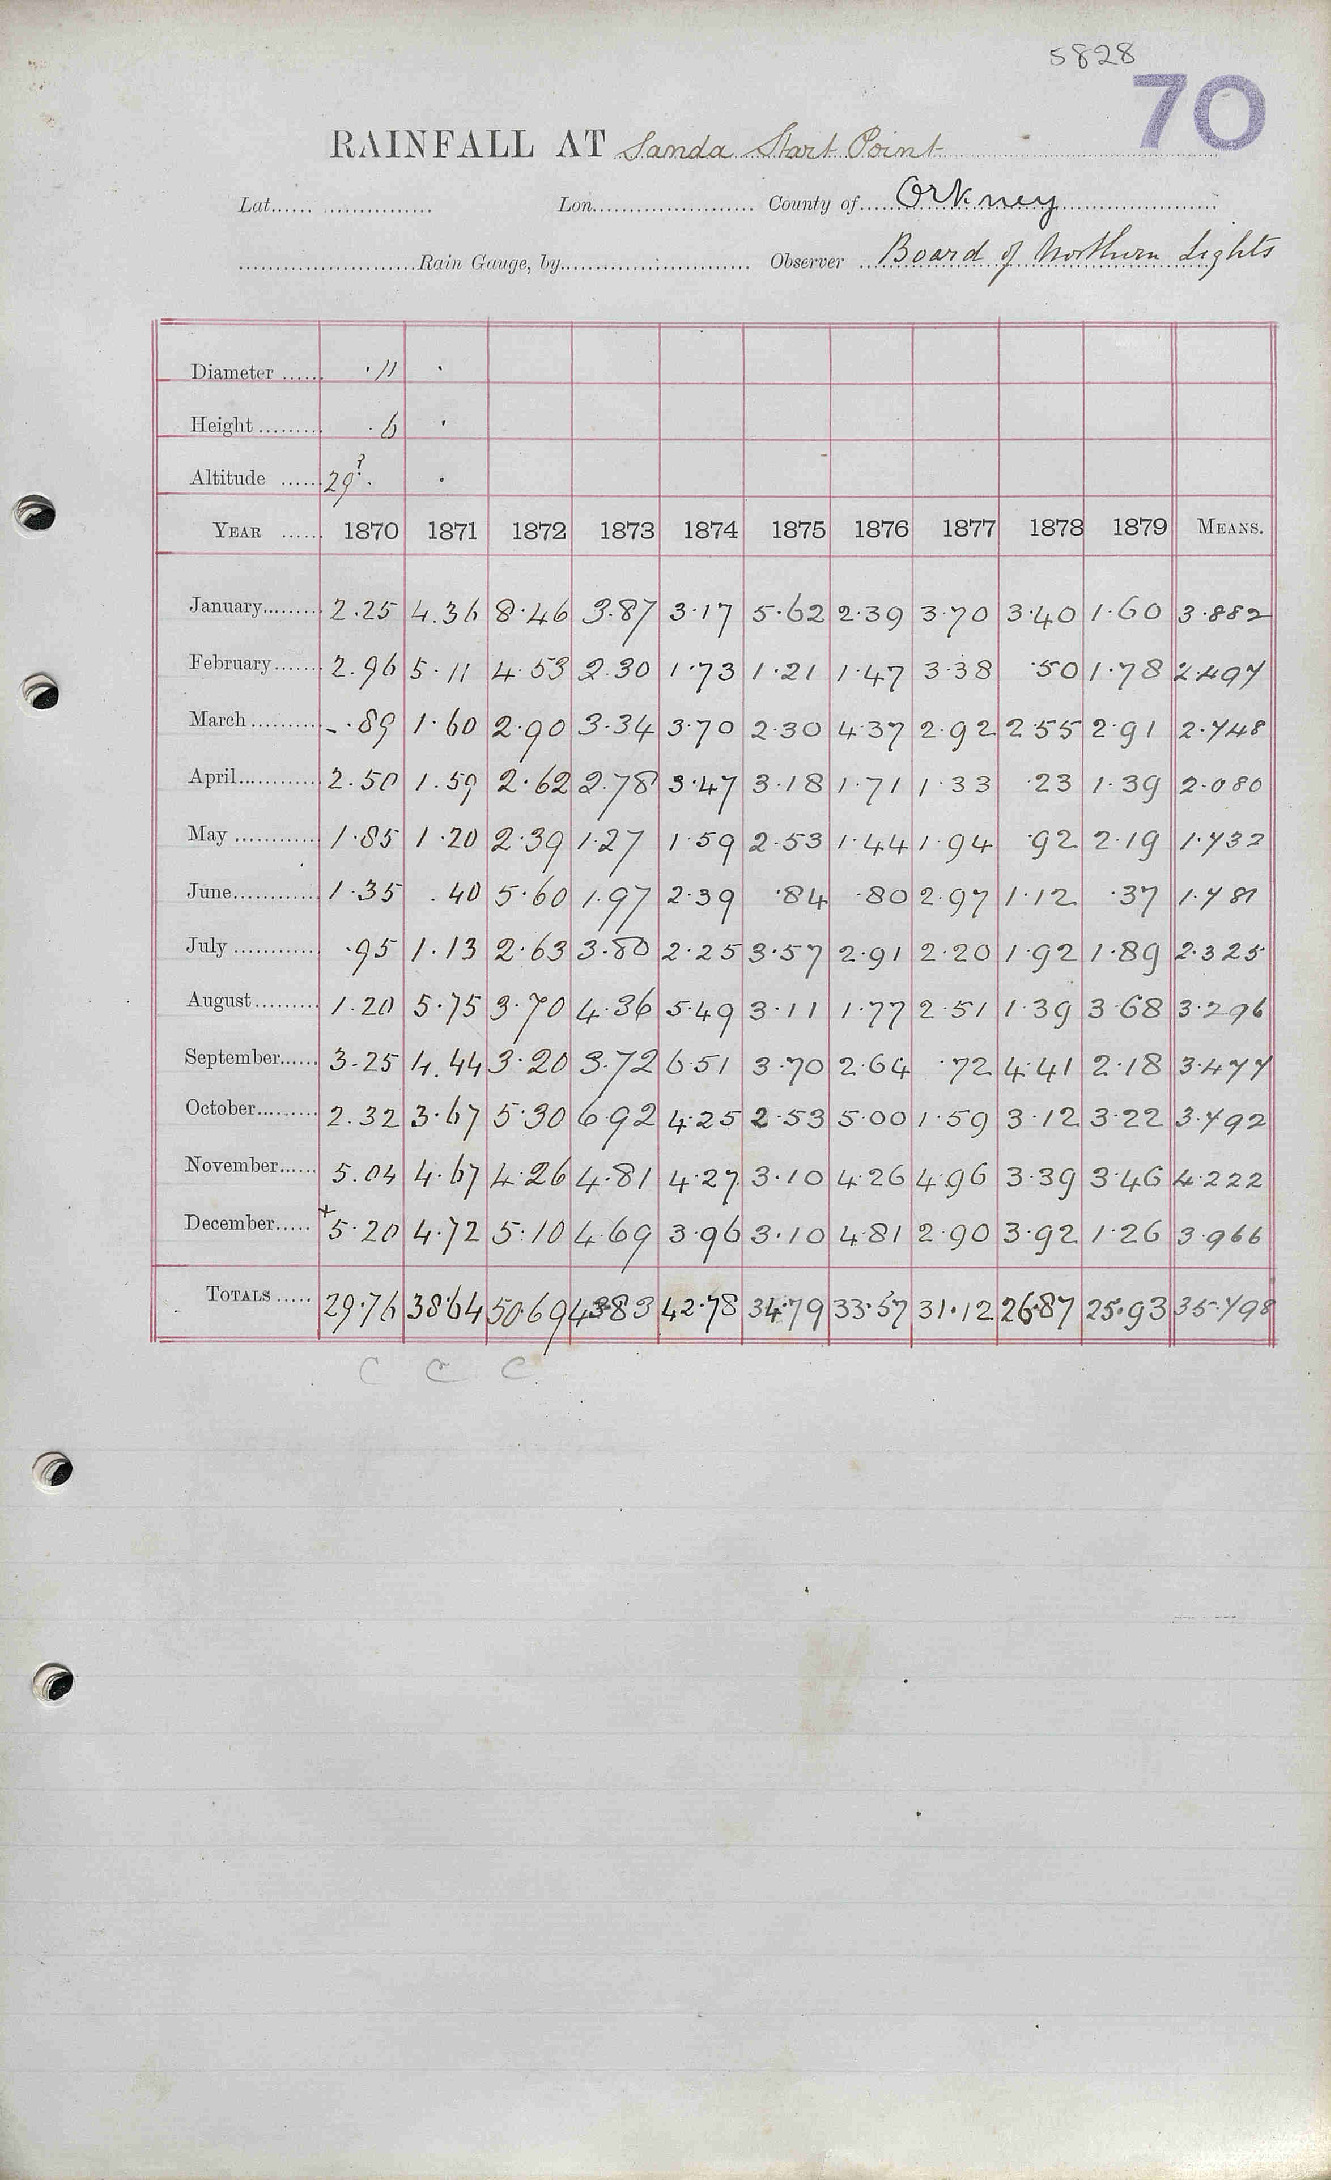 5828
70
RAINFALL AT Sanda Start Point
Lat. Lon. County of Orkney
Rain Gauge, by Observer Board of Northern Lights
Diameter ·11 ·
Height ·6 ·
Altitude 29?· ·
YEAR 1870 1871 1872 1873 1874 1875 1876 1877 1878 1879 MEANS.
January 2.25 4.36 8.46 3.87 3.17 5.62 2.39 3.70 3.40 1.60 3.882
February 2.96 5.11 4.53 2.30 1.73 1.21 1.47 3.38 .50 1.78 2.497
March -.89 1.60 2.90 3.34 3.70 2.30 4.37 2.92 2.55 2.91 2.748
April 2.50 1.59 2.62 2.78 3.47 3.18 1.71 1.33 .23 1.39 2.080
May 1.85 1.20 2.39 1.27 1.59 2.53 1.44 1.94 .92 2.19 1.732
June 1.35 .40 5.60 1.97 2.39 .84 .80 2.97 1.12 .37 1.781
July .95 1.13 2.63 3.80 2.25 3.57 2.91 2.20 1.92 1.89 2.325
August 1.20 5.75 3.70 4.36 5.49 3.11 1.77 2.51 1.39 3.68 3.296
September 3.25 4.44 3.20 3.72 6.51 3.70 2.64 .72 4.41 2.18 3.477
October 2.32 3.67 5.30 6.92 4.25 2.53 5.00 1.59 3.12 3.22 3.792
November 5.04 4.67 4.26 4.81 4.27 3.10 4.26 4.96 3.39 3.46 4.222
December x5.20 4.72 5.10 4.69 3.96 3.10 4.81 2.90 3.92 1.26 3.966
TOTALS 29.76 38.64 50.69 43.83 42.78 34.79 33.57 31.12 26.87 25.93 35.798
C C C